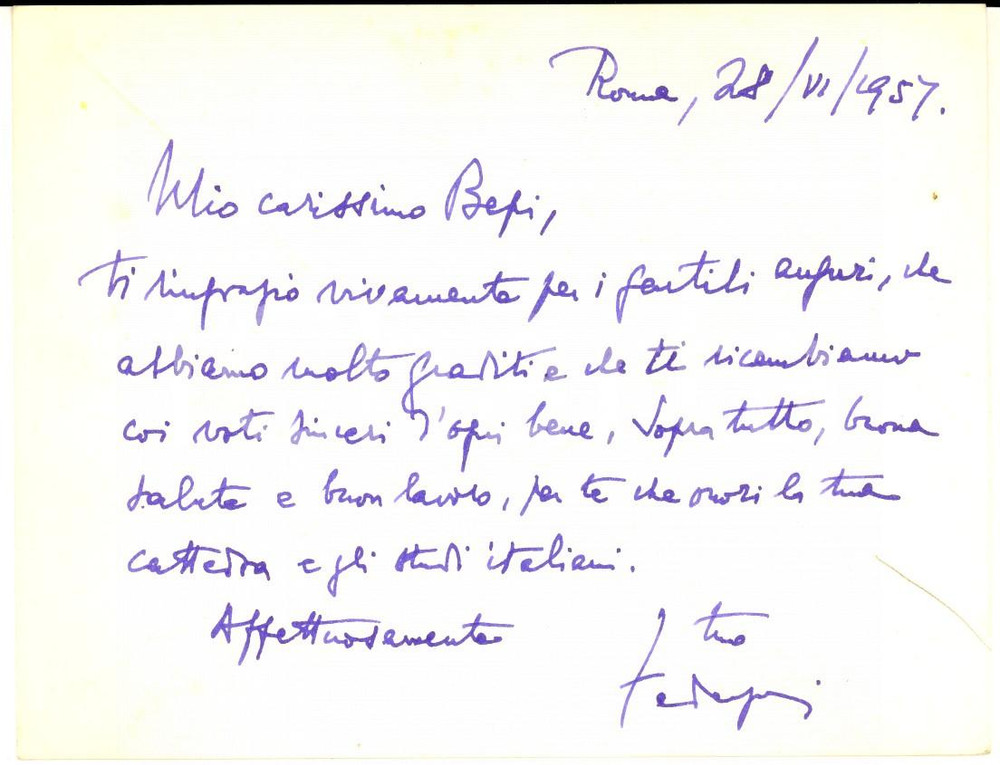 Roma, 28/VI/1957.
Mio carissimo Bepi,
ti ringrazio vivamente per i gentili auguri, che
abbiamo molto graditi e che ti ricambiamo
coi voti sinceri d'ogni bene, sopratutto, buona
salute e buon lavoro, per te che onori la tua
cattedra e gli studi italiani.
Affettuosamente tuo